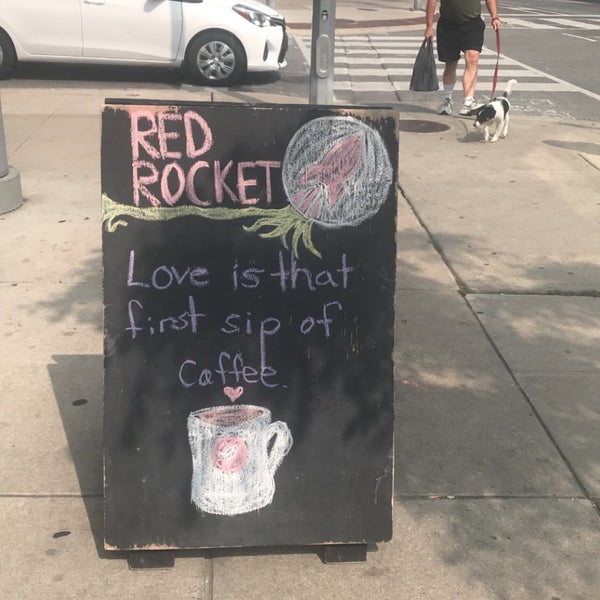 RED
ROCKET
Love is that
first sip of
Caffee.